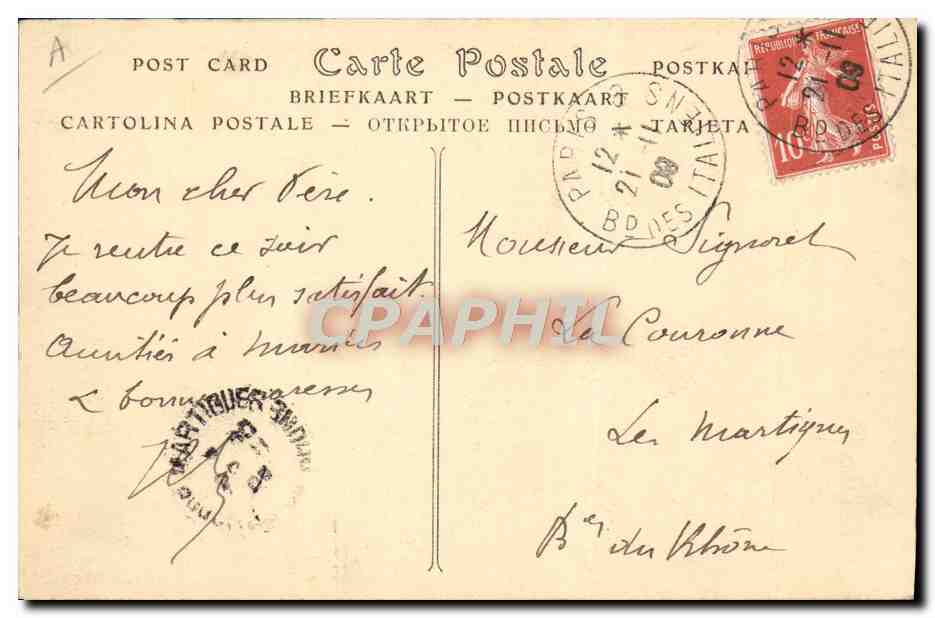 A
POST CARD Carte Postale POSTKA
BRIEFKAART — POSTKAART
CARTOLINA POSTALE — ОТКРЫТОЕ ПИСЬМО — TARJETA
RÉPUBLIQUE FRANÇAISE
10
POSTES
PARIS
12 *
21 - 11
09
BD DES ITALI
PARIS
12 *
21 - 11
09
BD DES ITALIENS
Mon cher Père.
Je rentre ce soir
beaucoup plus satisfait.
Amitiés à
& bonnes caresses
MARTIGUES
Monsieur Signoret
La Couronne
Les Martigues
Bches du Rhône
CPAPHIL